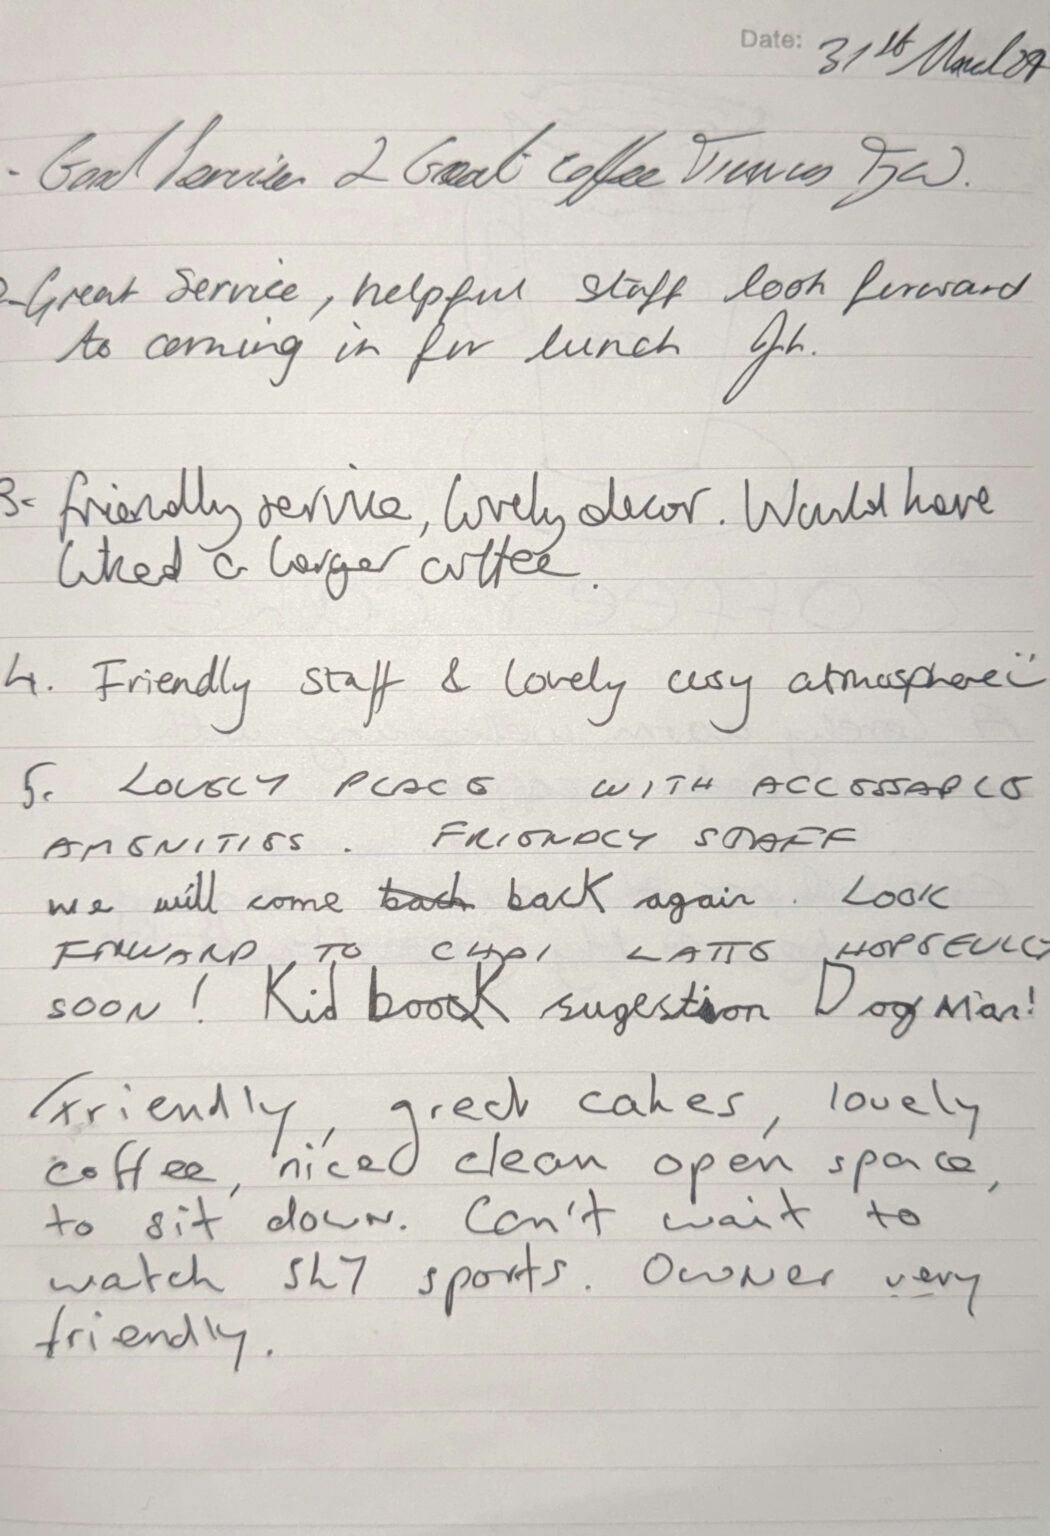 Date: 31st March
- Good Service & Great coffee
2- Great Service, helpful staff look forward
to coming in for lunch
3- friendly service, lovely decor. Would have
liked a larger coffee.
4. Friendly staff & lovely cosy atmosphere
5. LOVELY PLACE WITH ACCESSABLE
AMENITIES. FRIENDLY STAFF
we will come back back again. LOOK
FORWARD TO CHAI LATTE HOPEFULLY
SOON! Kid boook sugestion Dog Man!
friendly, great cakes, lovely
coffee, niced clean open space,
to sit down. Can't wait to
watch sports. Owner very
friendly.